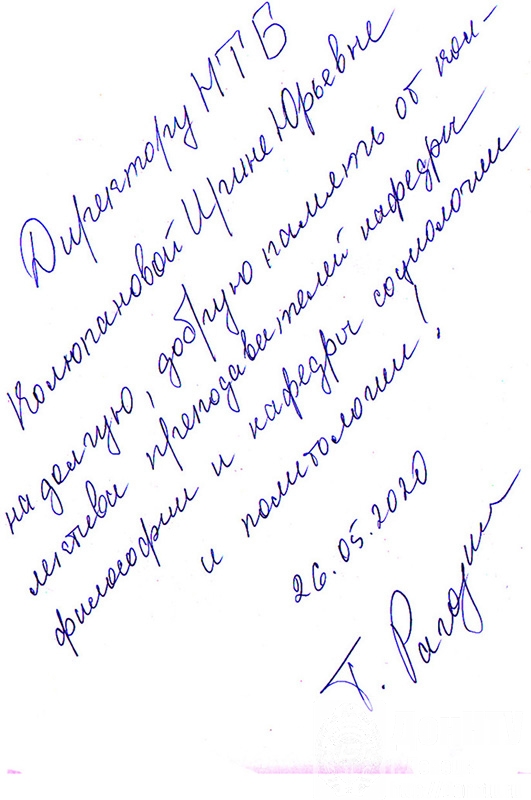 Директору НТБ
Колюпановой Ирине Юрьевне
на долгую, добрую память от кол-
лектива преподавателей кафедры
философии и кафедры социологии
и политологии!
26.05.2020
Т. Рагозин